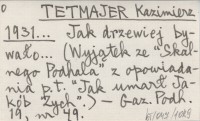 TETMAJER Kazimierz
1931... Jak drzewiej by
wało... (Wyjątek ze "Skal
nego Podhala" z opowiada
nia p.t. "Jak umarł Ja
kób Zych".) – Gaz. Podh.
19, nr 49.